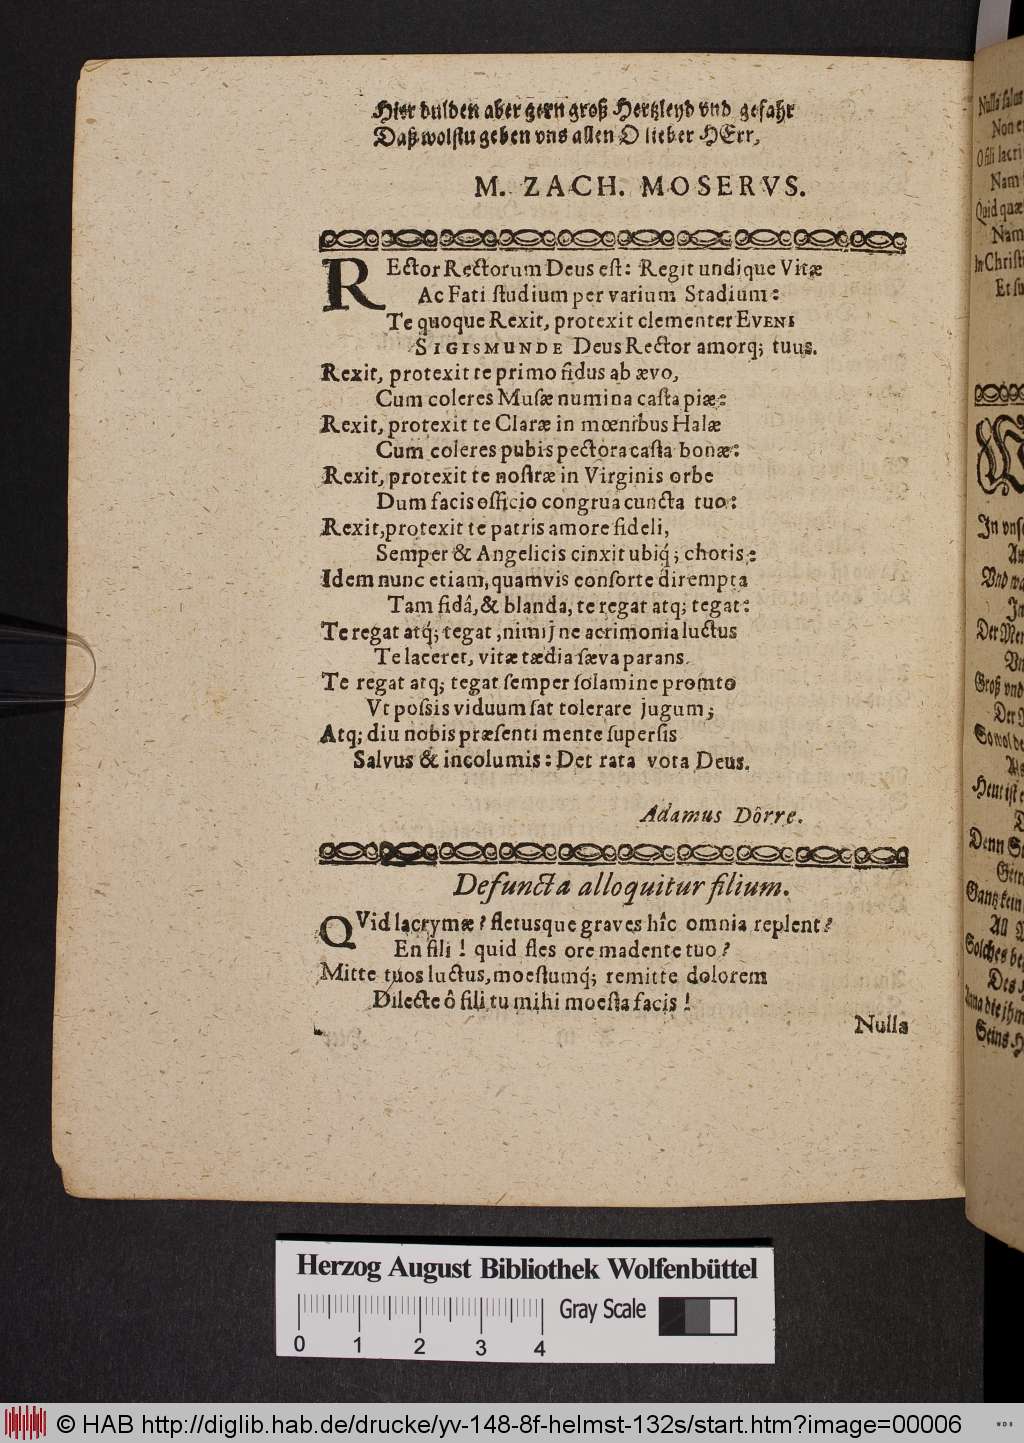 Hier dulden aber gern groß Hertzleyd vnd gefahr
Daß wolstu geben vns allen O lieber HErr,
M. ZACH. MOSERVS.
REctor Rectorum Deus est: Regit undique Vitæ
Ac Fati studium per varium Stadium:
Te quoque Rexit, protexit clementer EVENI
SIGISMUNDE Deus Rector amorq; tuus.
Rexit, protexit te primo fidus ab ævo,
Cum coleres Musæ numina casta piæ:
Rexit, protexit te Claræ in mœnibus Halæ
Cum coleres pubis pectora casta bonæ:
Rexit, protexit te nostræ in Virginis orbe
Dum facis officio congrua cuncta tuo:
Rexit, protexit te patris amore fideli,
Semper & Angelicis cinxit ubiq́; choris:
Idem nunc etiam, quamvis consorte dirempta
Tam fidâ, & blanda, te regat atq; tegat:
Te regat atq́; tegat, nimij ne acrimonia luctus
Te laceret, vitæ tædia sæva parans.
Te regat atq; tegat semper solamine promto
Vt possis viduum sat tolerare jugum;
Atq; diu nobis præsenti mente supersis
Salvus & incolumis: Det rata vota Deus.
Adamus Dôrre.
Defuncta alloquitur filium.
QVid lacrymæ? fletusque graves hîc omnia replent?
En fili! quid fles ore madente tuo?
Mitte tuos luctus, moestumq́; remitte dolorem
Dilecte ô fili tu mihi moesta facis!
Nulla
Nulla salus
Non
O fili lacri
Nam
Quid quæ
Nam
In Christi
Et su
In vnse
Vnd wa
Der Men
Groß vnd
Der
So wol de
Heut ist
Denn
Gantz kein
All
Solches be
Des
Seins
Herzog August Bibliothek Wolfenbüttel
Gray Scale
0 1 2 3 4
© HAB http://diglib.hab.de/drucke/yv-148-8f-helmst-132s/start.htm?image=00006